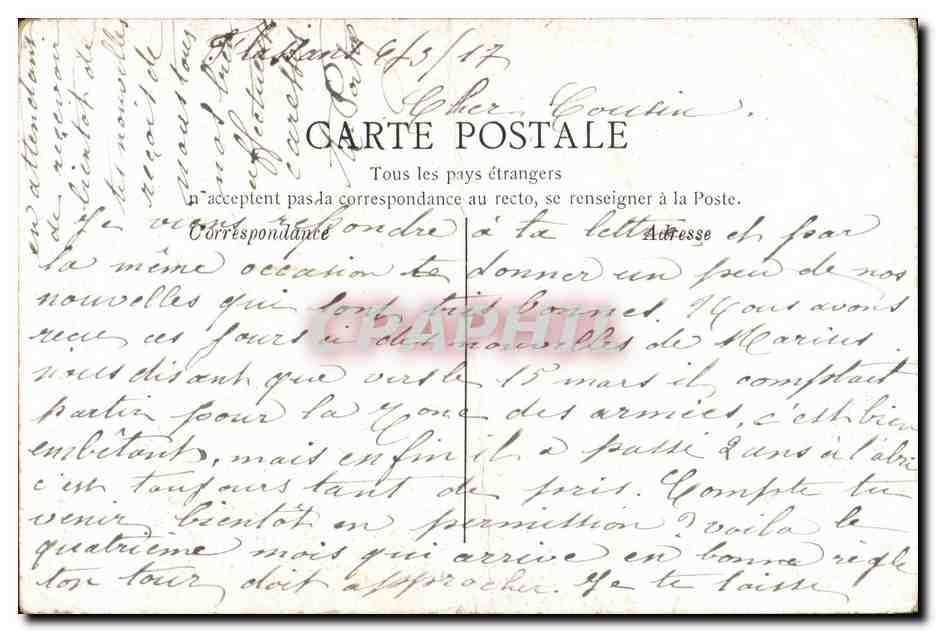 Flassans 6/3/17
Cher Cousin.
CARTE POSTALE
Tous les pays étrangers
n'acceptent pas la correspondance au recto, se renseigner à la Poste.
Correspondance
Adresse
Je viens repondre à ta lettre et par
la même occasion te donner un peu de nos
nouvelles qui sont très bonnes. Nous avons
recu ces jours ci des nouvelles de Marius
nous disant que vers le 15 mars il comptait
partir pour la Zone des armées, c'est bien
embêtant, mais enfin il a passé 2 ans à l'abri
c'est toujours tant de pris. Compte tu
venir bientôt en permission? voila le
quatrième mois qui arrive en bonne règle
ton tour doit approcher. Je te laisse
en attendant
de recevoir
bientot de
tes nouvelles
reçoit de
nous tous
nos
affectueuses
caresses
CRAPHIL